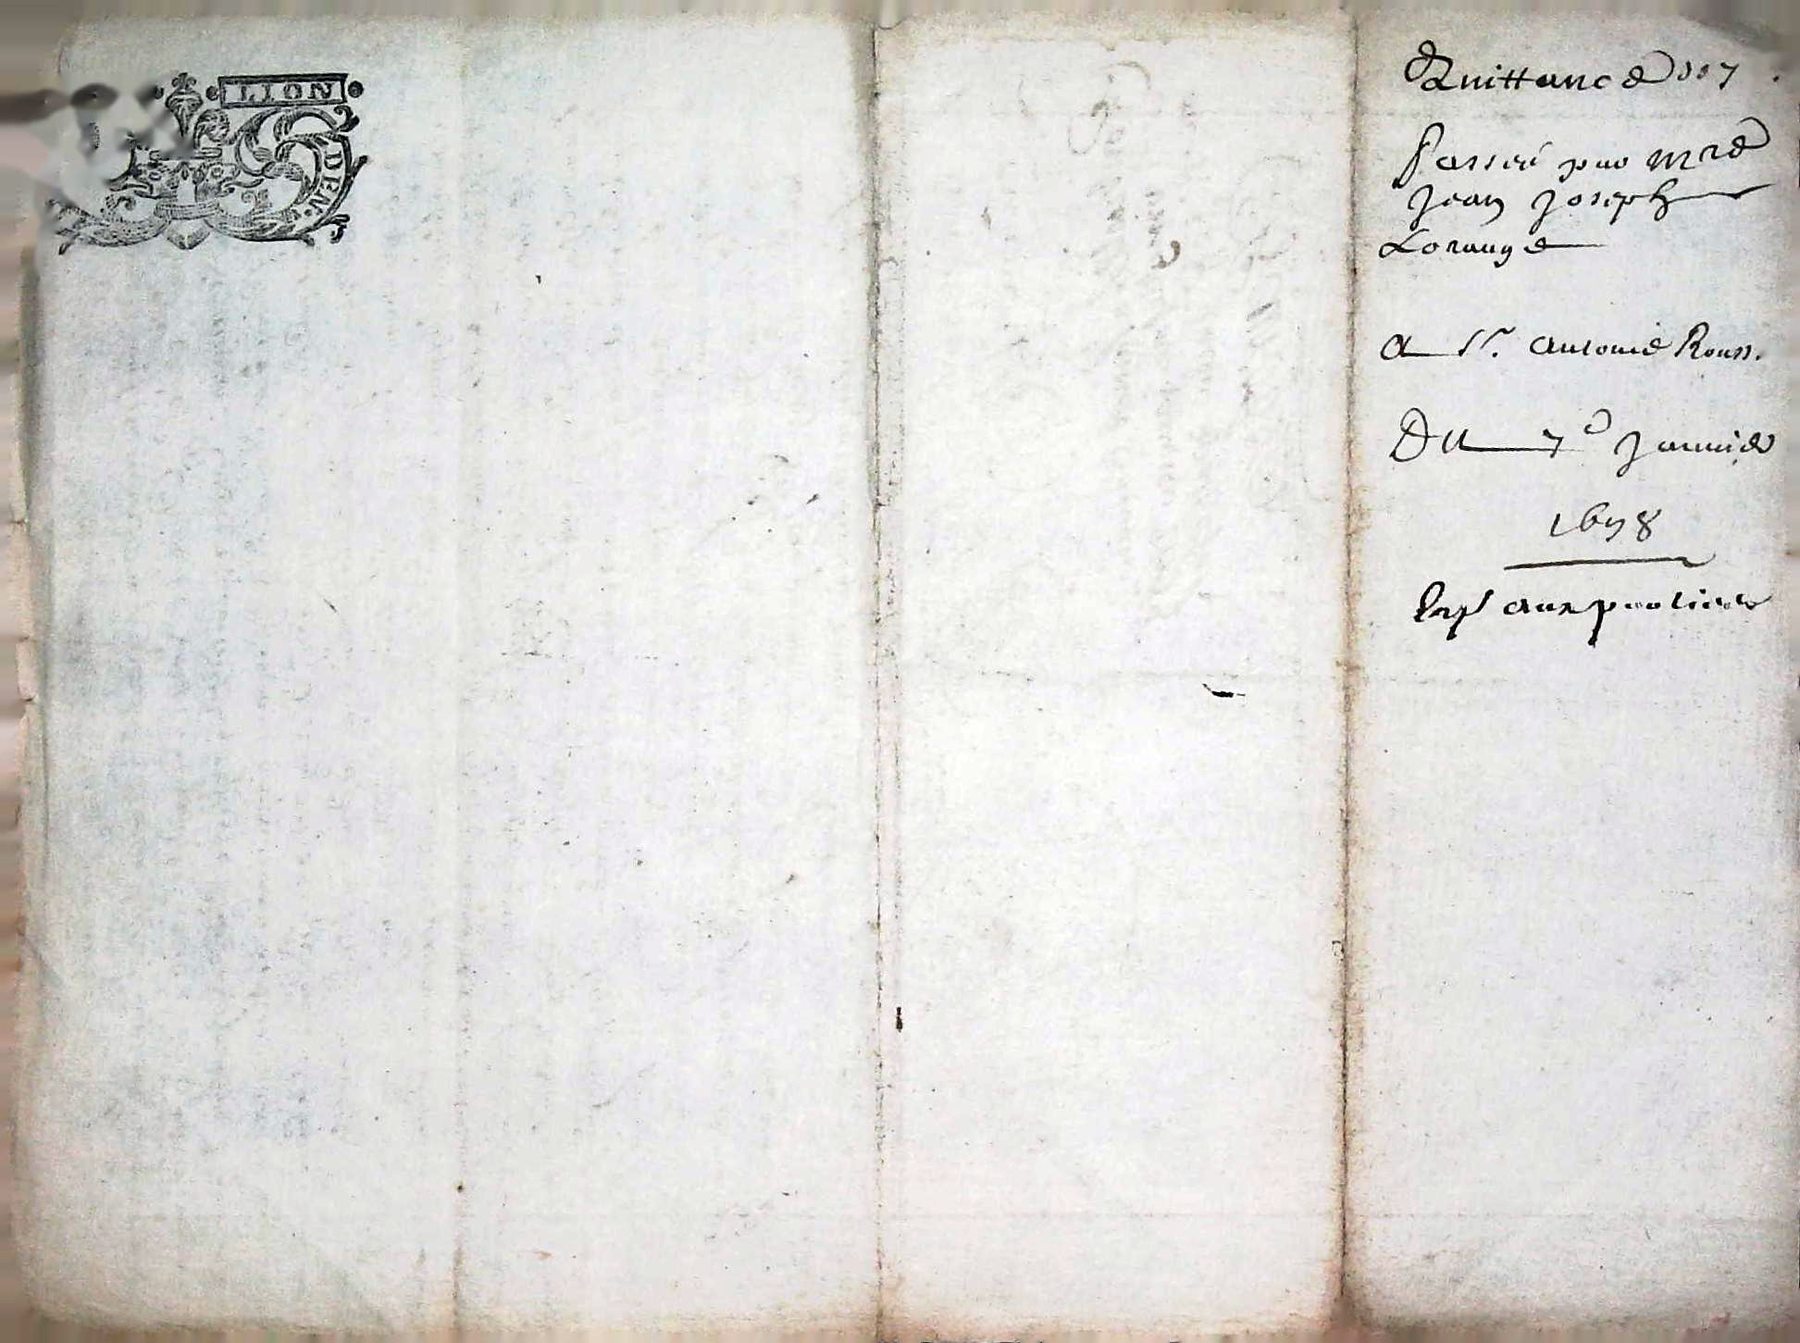 LION
DEN.
Quittance 117
passée par mre
Jean Joseph
Lorange
a Sr. Antoine Rouss.
Du 7e Janvier
1698
Exp aux parties